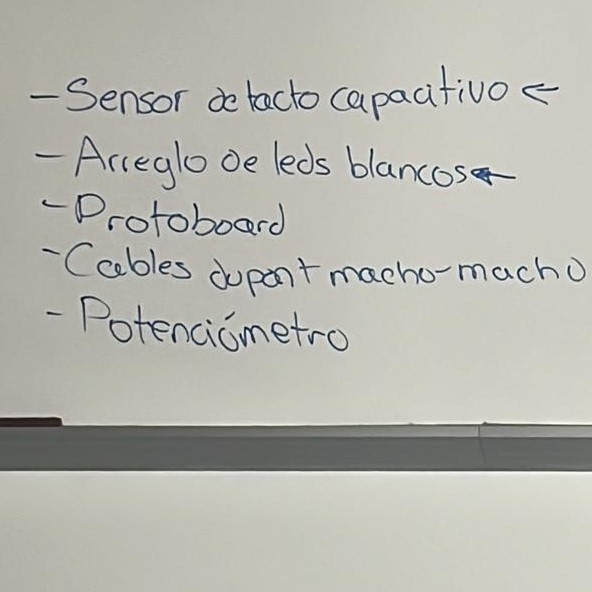 - Sensor de tacto capacitivo ←
- Arreglo de leds blancos ←
- Protoboard
- Cables dupont macho-macho
- Potenciómetro